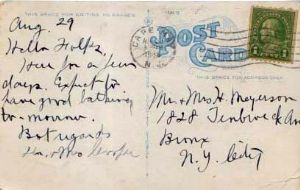 THIS SPACE FOR WRITING MESSAGES
Aug. 29
Hello Folks,
Here for a few
days. Expect to
have good bathing
to-morrow.
Best regards
POST CARD
THIS SPACE FOR ADDRESS ONLY
Mr. & Mrs. H. Meyerson
1828
Bronx
N.Y. City